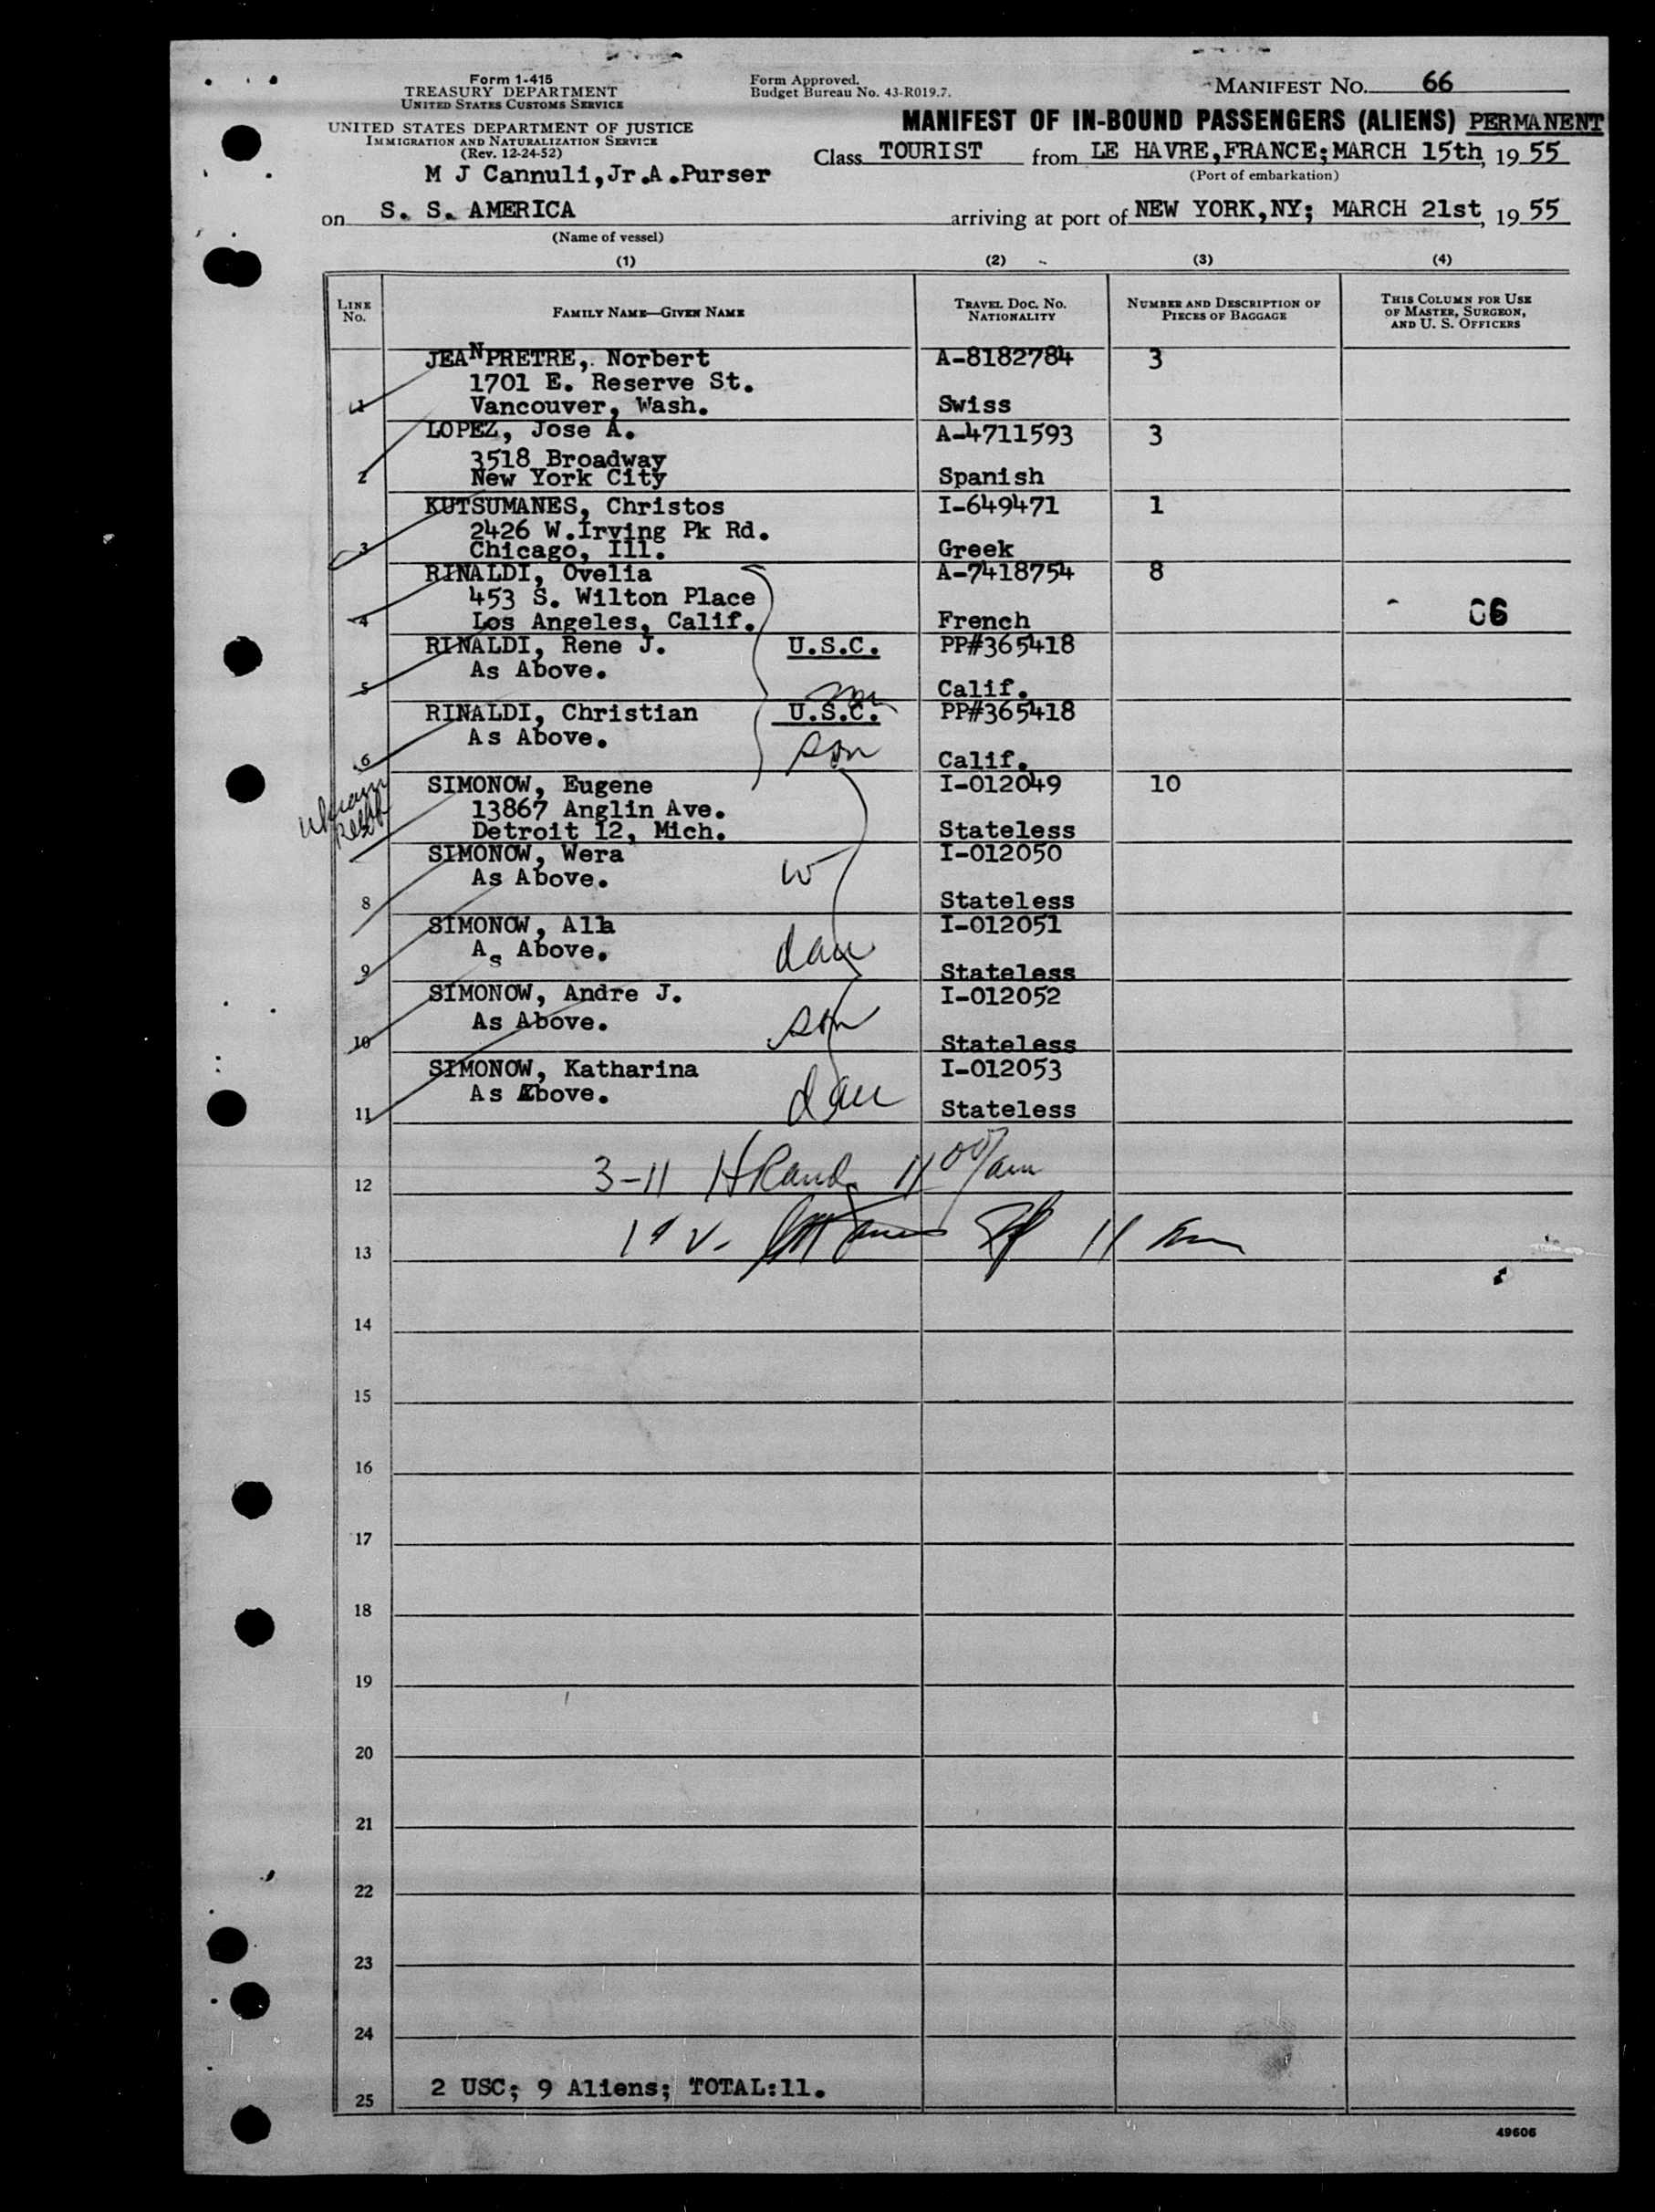 Form I-415
TREASURY DEPARTMENT
UNITED STATES CUSTOMS SERVICE
UNITED STATES DEPARTMENT OF JUSTICE
IMMIGRATION AND NATURALIZATION SERVICE
(Rev. 12-24-52)
M J Cannuli,Jr.A.Purser
Form Approved.
Budget Bureau No. 43-R019.7.
MANIFEST NO. 66
MANIFEST OF IN-BOUND PASSENGERS (ALIENS) PERMANENT
Class TOURIST from LE HAVRE,FRANCE; MARCH 15th, 19 55
(Port of embarkation)
on S. S. AMERICA arriving at port of NEW YORK,NY; MARCH 21st, 19 55
(Name of vessel)
(1) (2) (3) (4)
LINE No. FAMILY NAME—GIVEN NAME TRAVEL DOC. NO. NATIONALITY NUMBER AND DESCRIPTION OF PIECES OF BAGGAGE THIS COLUMN FOR USE OF MASTER, SURGEON, AND U. S. OFFICERS
JEANPRETRE, Norbert A-8182784 3
1701 E. Reserve St.
1 Vancouver, Wash. Swiss
LOPEZ, Jose A. A-4711593 3
3518 Broadway
2 New York City Spanish
KUTSUMANES, Christos I-649471 1
2426 W.Irving Pk Rd.
3 Chicago, Ill. Greek
RINALDI, Ovelia A-7418754 8
453 S. Wilton Place
4 Los Angeles, Calif. French 66
RINALDI, Rene J. U.S.C. PP#365418
As Above.
5 son Calif.
RINALDI, Christian U.S.C. PP#365418
As Above. son
6 Calif.
SIMONOW, Eugene I-012049 10
13867 Anglin Ave.
Detroit 12, Mich. Stateless
SIMONOW, Wera I-012050
As Above. w
8 Stateless
SIMONOW, Alla I-012051
As Above. dau
9 Stateless
SIMONOW, Andre J. I-012052
As Above. son
10 Stateless
SIMONOW, Katharina I-012053
As Above. dau
11 Stateless
3-11 11 00/am
12
13 11
14
15
16
17
18
19
20
21
22
23
24
25 2 USC; 9 Aliens; TOTAL:11.
49606